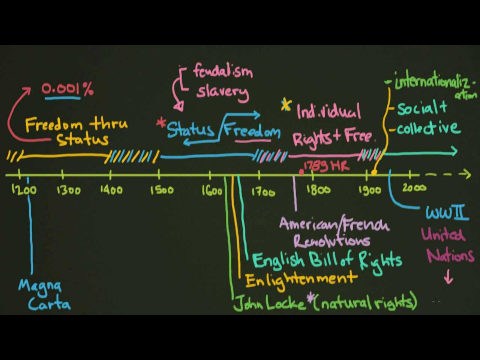 feudalism
slavery
0.001%
internationaliz-
ation
Freedom thru
Status
* Status
Freedom
* Individual
Rights + Free.
Social +
collective
1789 HR
1200 1300 1400 1500 1600 1700 1800 1900 2000
Magna
Carta
American/French
Revolutions
English Bill of Rights
Enlightenment
John Locke * (natural rights)
WWII
United
Nations